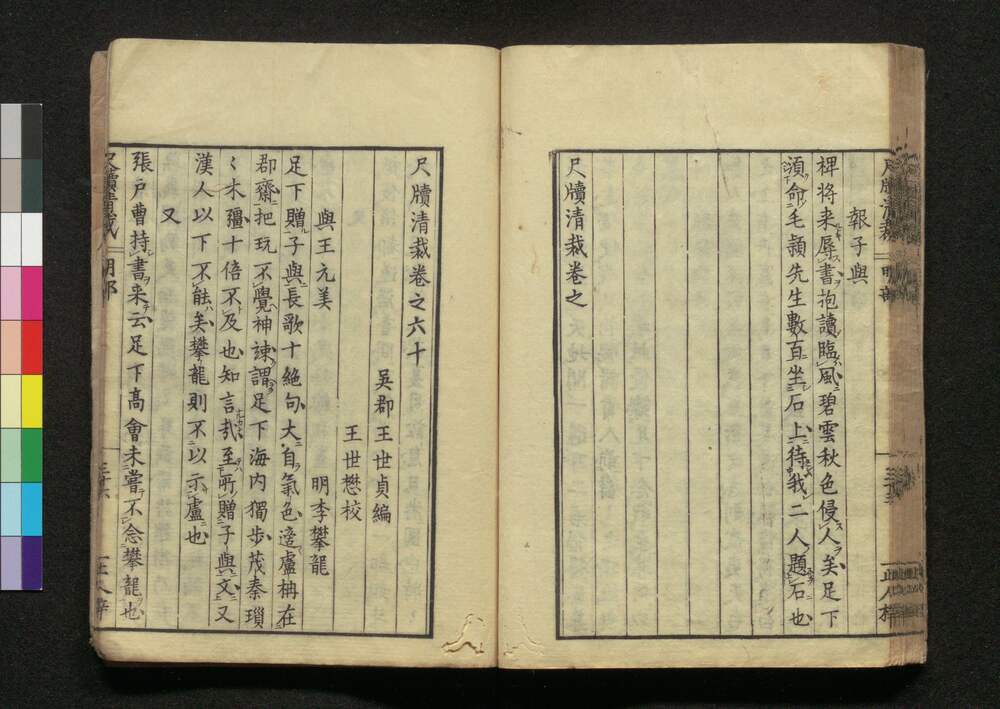 報子與
裨将来辱書抱讀臨風碧雲秋色侵人矣足下
須命毛頴先生數百坐石上待我二人題石也
尺牘清裁卷之
尺牘清裁卷之六十
吳郡王世貞編
王世懋校
與王元美
明李攀龍
足下贈子與長歌十絶句大自氣色邉盧柟在
郡齋把玩不覺神竦謂足下海内獨歩茂秦瑣
〻木彊十倍不及也知言哉至所贈子與文又
漢人以下不能矣攀龍則不以示盧也
又
張戸曹持書来云足下髙會未嘗不念攀龍也